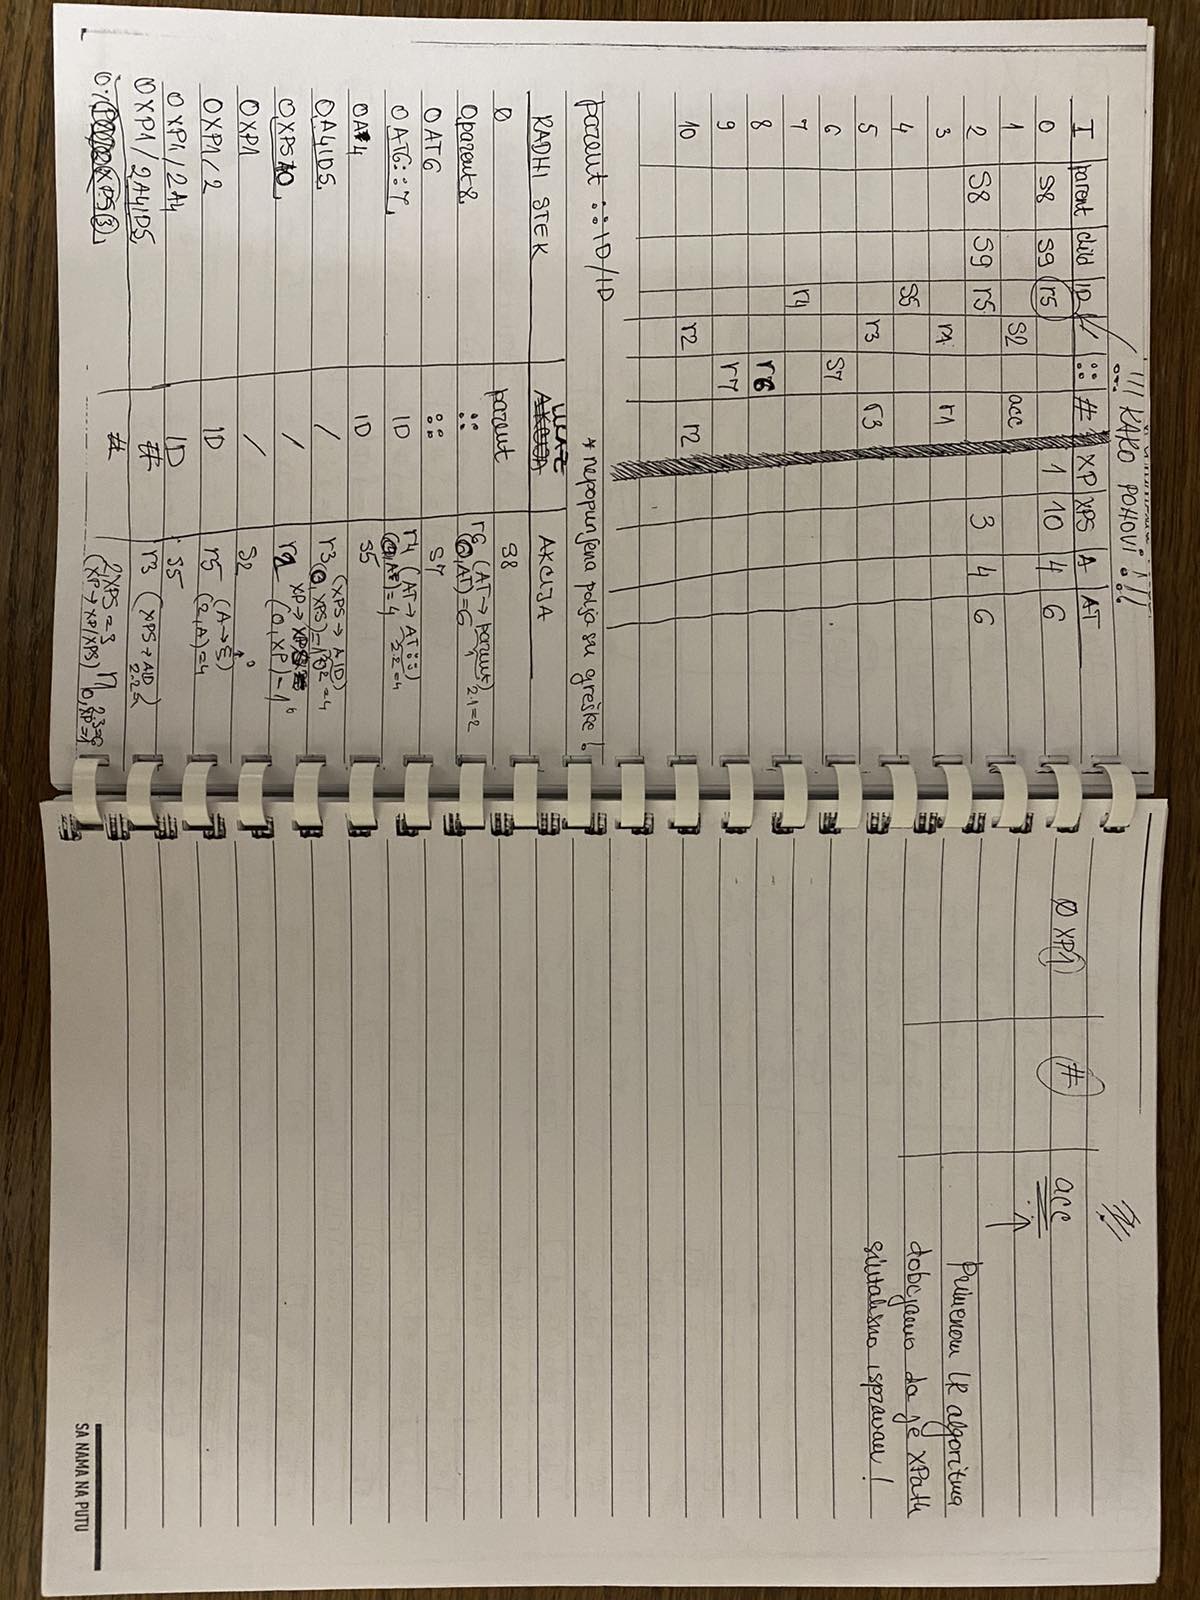 !!! KAKO PONOVI !!!
I parent child ID / :: # XP XPS A AT
0 S8 S9 r5 1 10 4 6
1 S2 acc
2 S8 S9 r5 3 4 6
3 r1 r1
4 S5
5 r3 r3
6 S7
7 r4
8 r6
9 r7
10 r2 r2
* nepopunjena polja su greške!
parent :: ID/ID
RADNI STEK ULAZ AKCIJA
0 parent S8
0parent8 :: r6 (AT → parent) 2.1=2
(0,AT)=6
0AT6 :: S7
0AT6::7 ID r4 (AT → AT::) 2.2=4
(0,A)=4
0A4 ID S5
0A4ID5 / r3 (XPS → AID) 2.2=4
(0,XPS)=10
0XPS10 / r2 XP → XPS
(0,XP)=1
0XP1 / S2
0XP1/2 ID r5 (A → ε)
(2,A)=4
0XP1/2A4 ID S5
0XP1/2A4ID5 # r3 (XPS → AID) 2.2=4
# 2,XPS=3
(XP → XP/XPS) r1 2.3=6
0,XP=1
0XP1 # acc
Primenom LR algoritma
dobijamo da je XPath
sintaksno ispravan!
SA NAMA NA PUTU